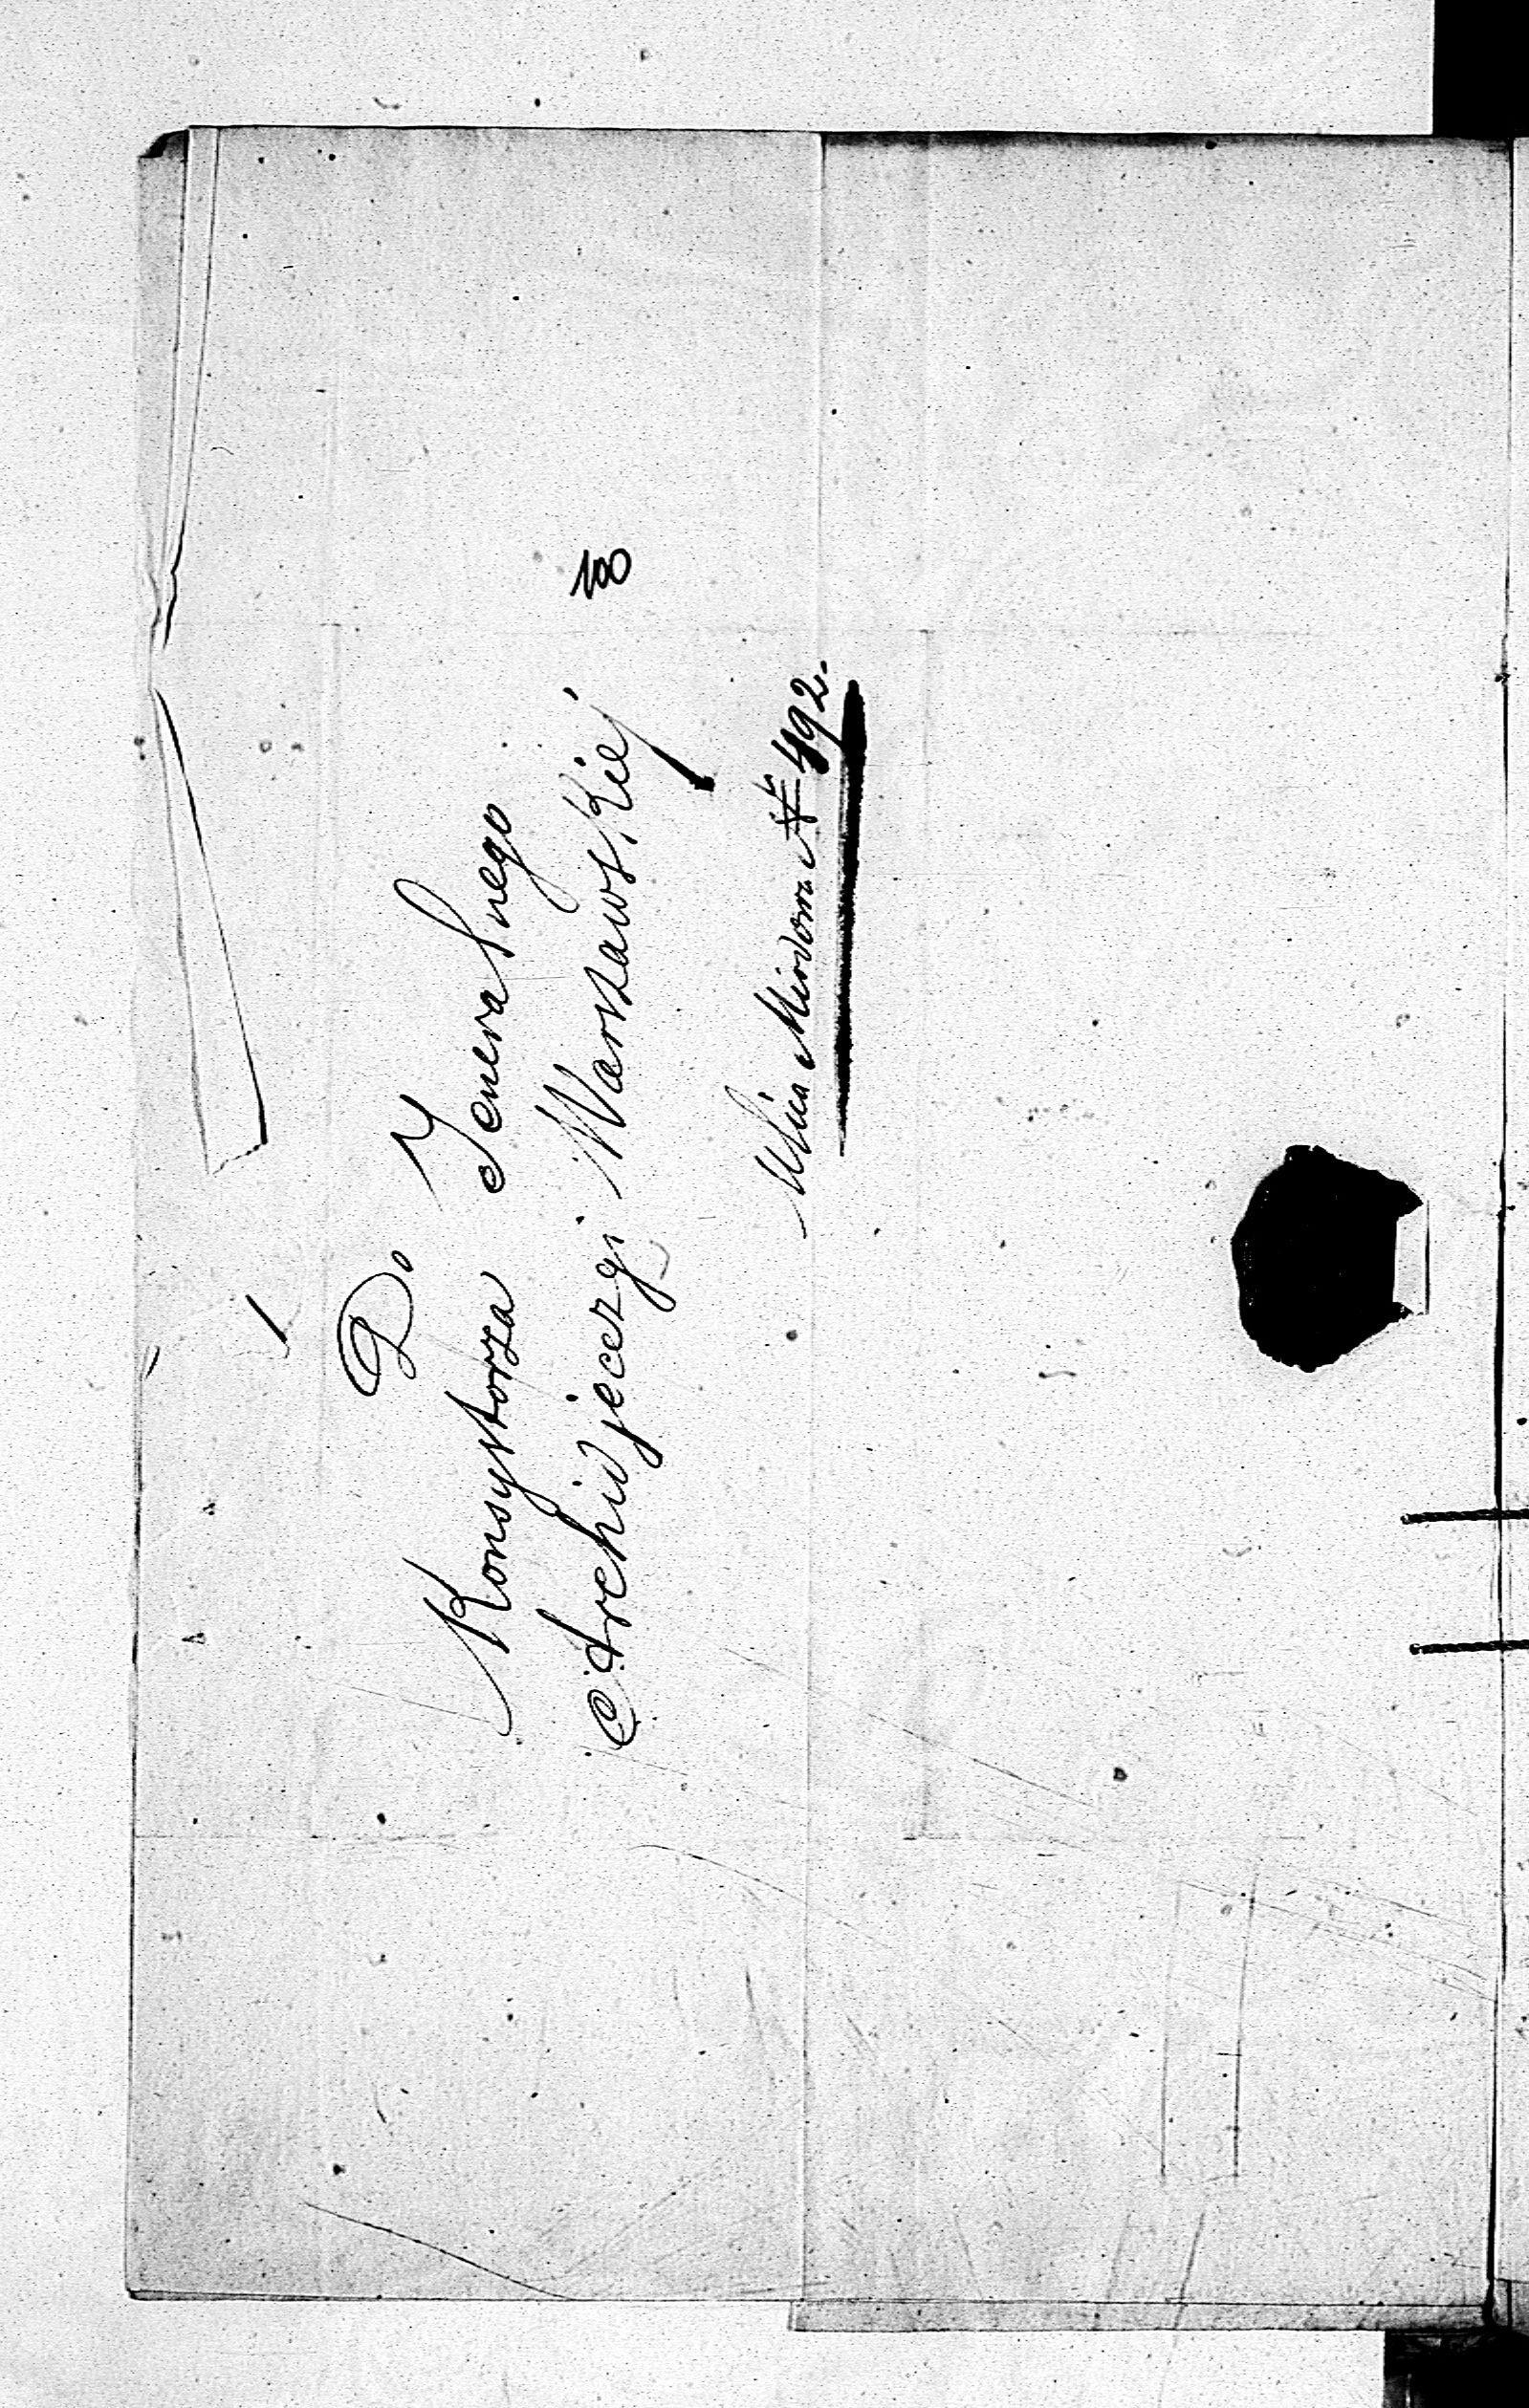 Do
Konsystorza Jeneralnego
Archidjecezyi Warszawskiéj
100
Ulica Miodowa Nr 492.